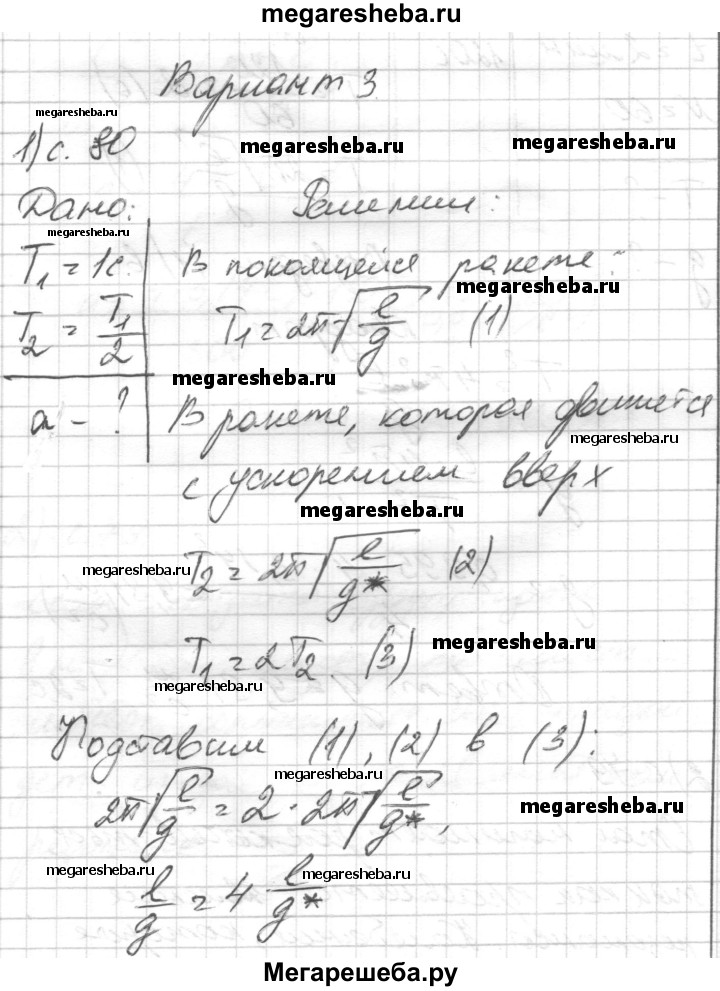 megaresheba.ru
Вариант 3
megaresheba.ru
1) с. 80
megaresheba.ru
megaresheba.ru
Дано:
Решение:
megaresheba.ru
T₁ = 1с.
В покоящейся ракете:
megaresheba.ru
T₂ = T₁/2
T₁ = 2π√(l/g) (1)
megaresheba.ru
a - ?
В ракете, которая движется
megaresheba.ru
с ускорением вверх
megaresheba.ru
megaresheba.ru
T₂ = 2π√(l/g*) (2)
megaresheba.ru
T₁ = 2T₂. (3)
megaresheba.ru
Подставим (1), (2) в (3):
megaresheba.ru
2π√(l/g) = 2 · 2π√(l/g*),
megaresheba.ru
megaresheba.ru
megaresheba.ru
l/g = 4 · l/g*
Мегарешеба.ру